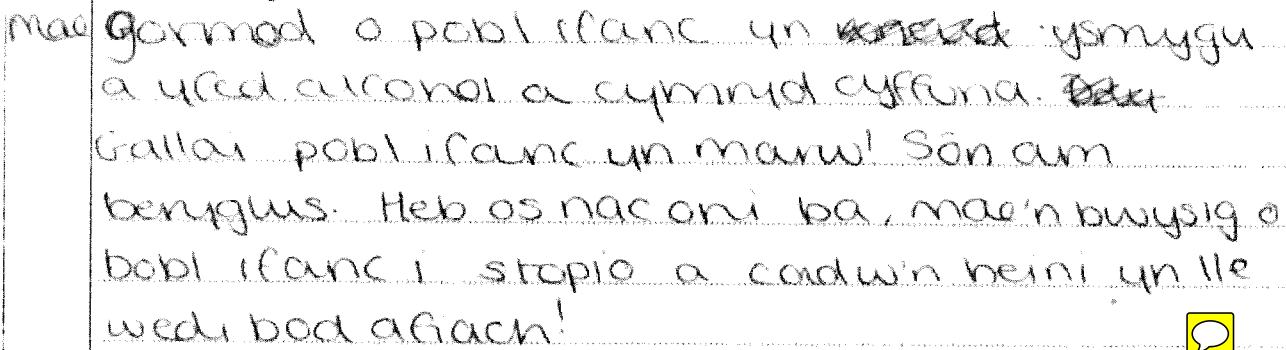 Mae Gormod o pobl ifanc yn ysmygu
a yfed alconol a cymryd cyffuria.
Gallai pobl ifanc yn marw! Sôn am
beryglus. Heb os nac oni ba, mae'n bwysig o
bobl ifanc i stopio a cadw'n heini yn lle
wedi bod afiach!